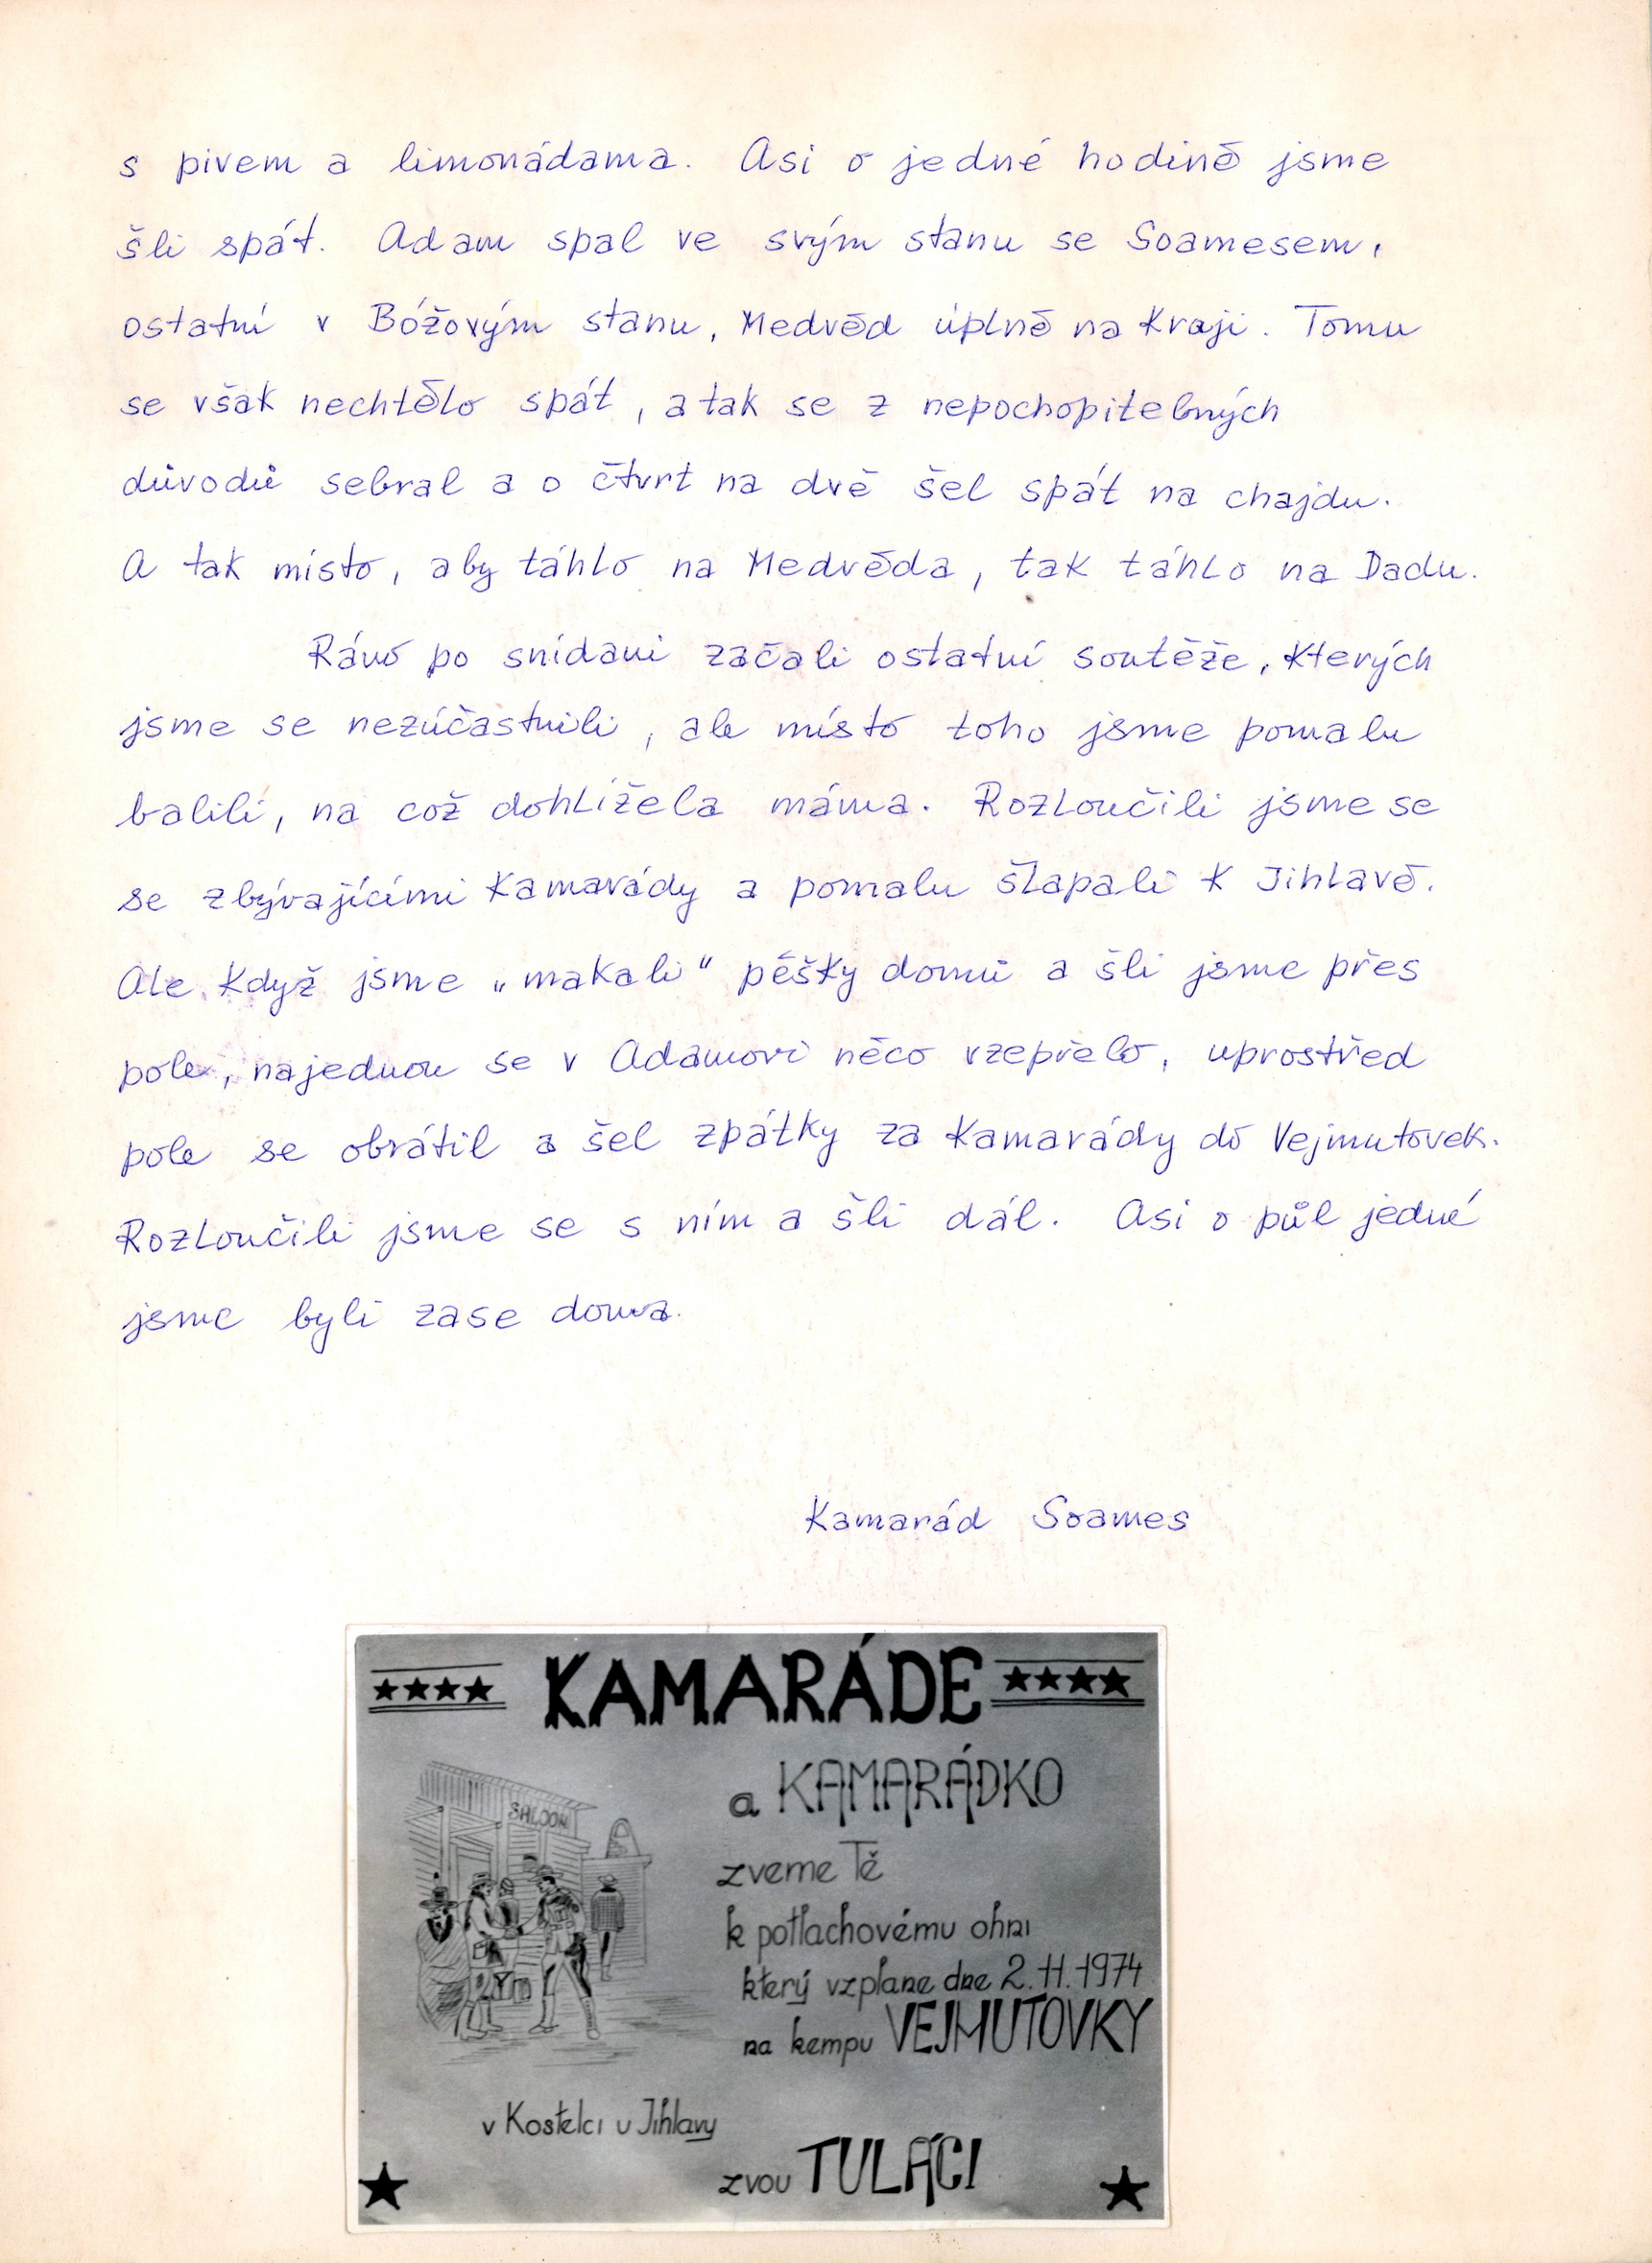 s pivem a limonádama. Asi o jedné hodině jsme
šli spát. Adam spal ve svým stanu se Soamesem,
ostatní v Bóžovým stanu, Medvěd úplně na kraji. Tomu
se však nechtělo spát, a tak se z nepochopitelných
důvodů sebral a o čtvrt na dvě šel spát na chajdu.
A tak místo, aby táhlo na Medvěda, tak táhlo na Dadu.
Ráno po snídani začali ostatní soutěže, kterých
jsme se nezúčastnili, ale místo toho jsme pomalu
balili, na což dohlížela máma. Rozloučili jsme se
se zbývajícími kamarády a pomalu šlapali k Jihlavě.
Ale když jsme „makali" pěšky domů a šli jsme přes
pole, najednou se v Adamovi něco vzepřelo, uprostřed
pole se obrátil a šel zpátky za kamarády do Vejmutovek.
Rozloučili jsme se s ním a šli dál. Asi o půl jedné
jsme byli zase doma.
Kamarád Soames
KAMARÁDE
a KAMARÁDKO
SALOON
zveme Tě
k potlachovému ohni
který vzplane dne 2.11.1974
na kempu VEJMUTOVKY
v Kostelci u Jihlavy
zvou TULÁCI